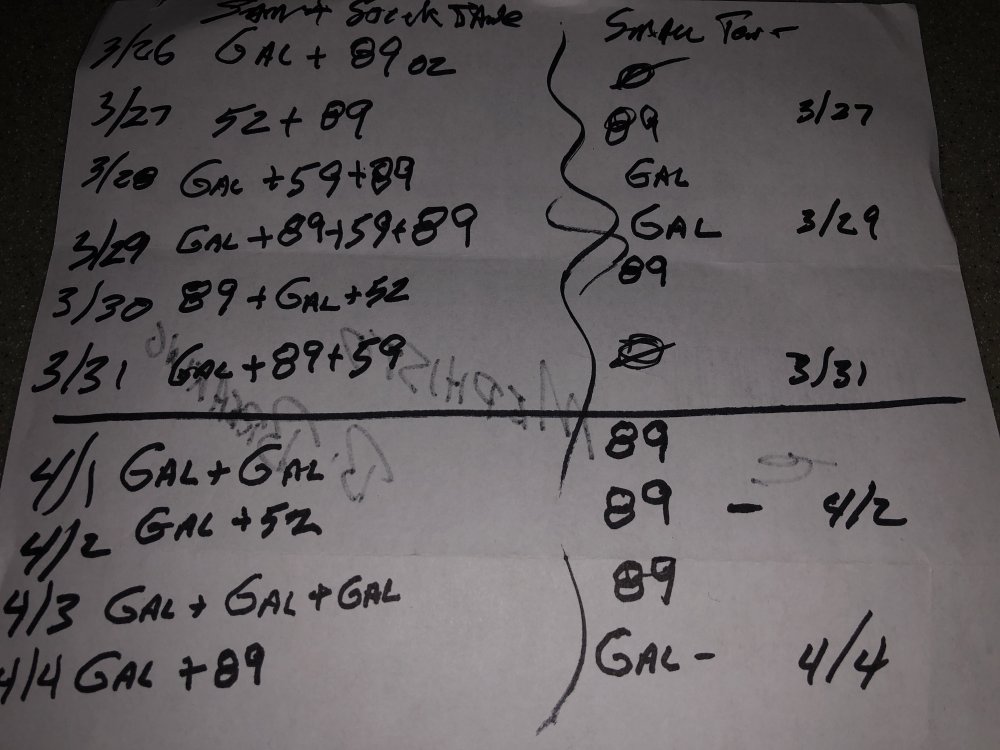 Stock Tank Small Tank
3/26 GAL + 89 oz Ø
3/27 52 + 89 89 3/27
3/28 GAL + 59 + 89 GAL
3/29 GAL + 89 + 59 + 89 GAL 3/29
89
3/30 89 + GAL + 52
3/31 GAL + 89 + 59 Ø 3/31
4/1 GAL + GAL 89
4/2 GAL + 52 89 - 4/2
4/3 GAL + GAL + GAL 89
4/4 GAL + 89 GAL - 4/4